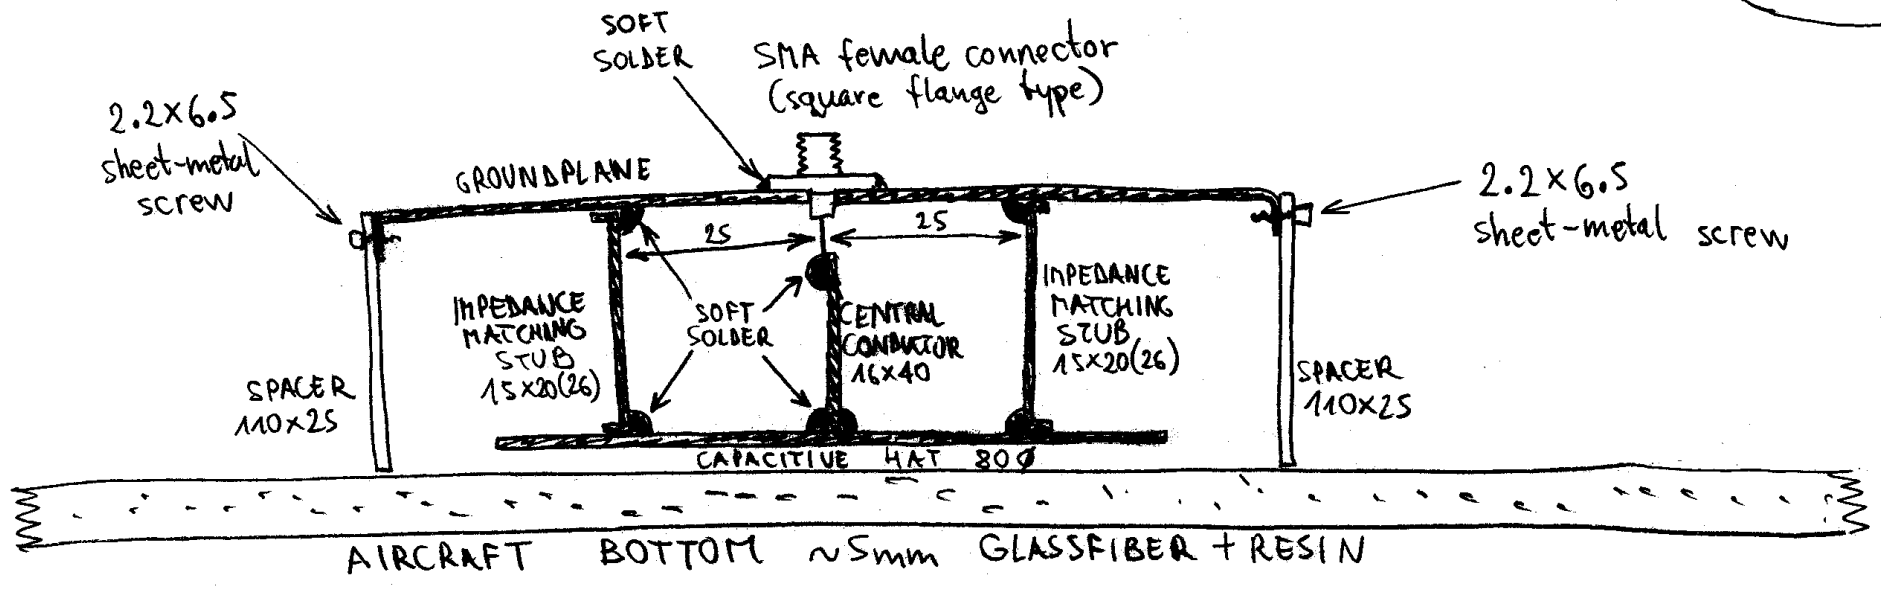 SOFT
SOLDER
SMA female connector
(square flange type)
2.2×6.5
sheet-metal
screw
GROUNDPLANE
2.2×6.5
sheet-metal screw
25
25
IMPEDANCE
MATCHING
STUB
15×20(26)
SOFT
SOLDER
CENTRAL
CONDUCTOR
16×40
IMPEDANCE
MATCHING
STUB
15×20(26)
SPACER
110×25
SPACER
110×25
CAPACITIVE HAT 80Ø
AIRCRAFT BOTTOM ~5mm GLASSFIBER + RESIN